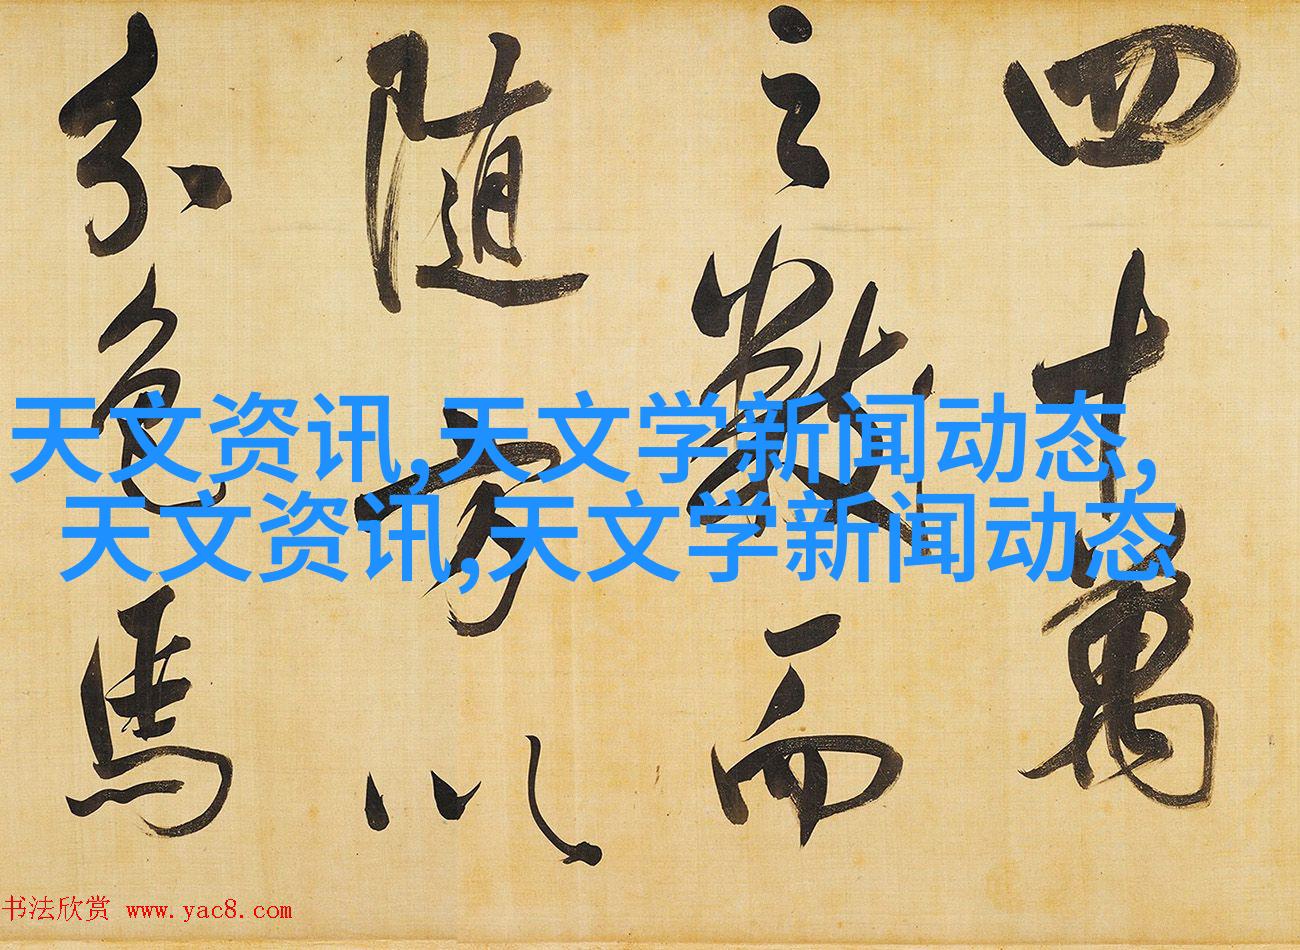 四十萬
之數而
隨方以
分色馬
天文资讯,天文学新闻动态,
天文资讯,天文学新闻动态
书法欣赏 www.yac8.com